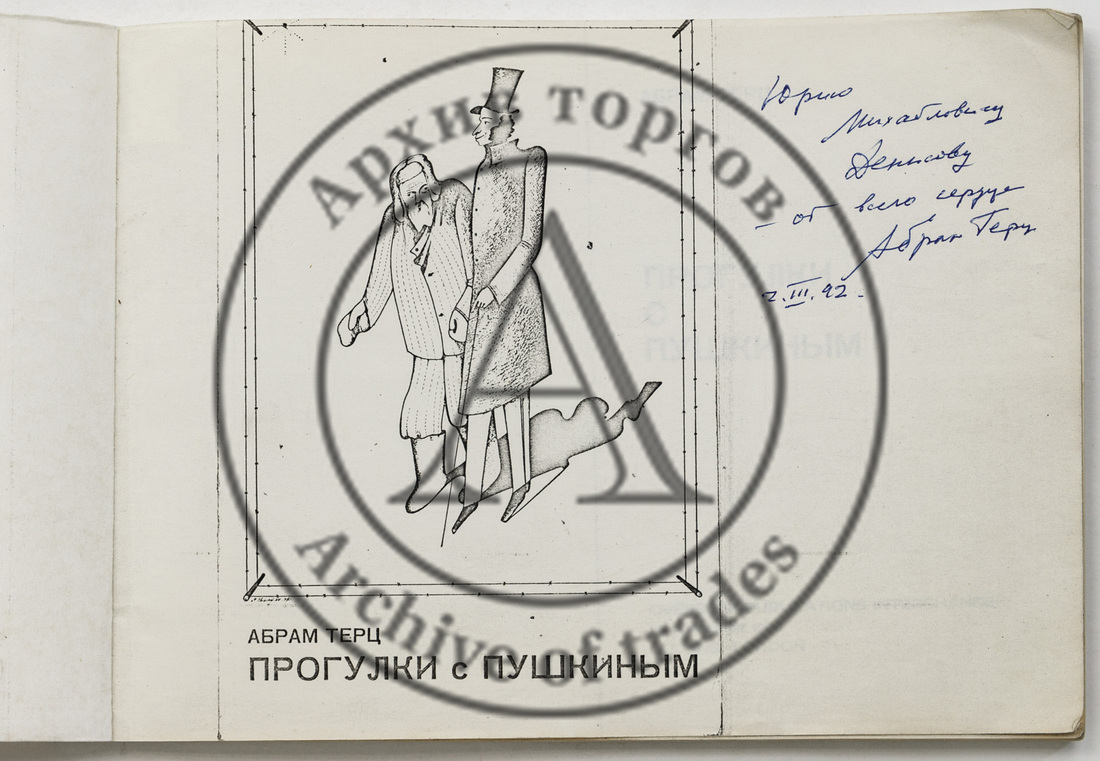 Архив торгов
Юрию
Михайловичу
Денисову
– от всего сердца
Абрам Терц
2.III.92.
АБРАМ ТЕРЦ
ПРОГУЛКИ с ПУШКИНЫМ
Archive of trades